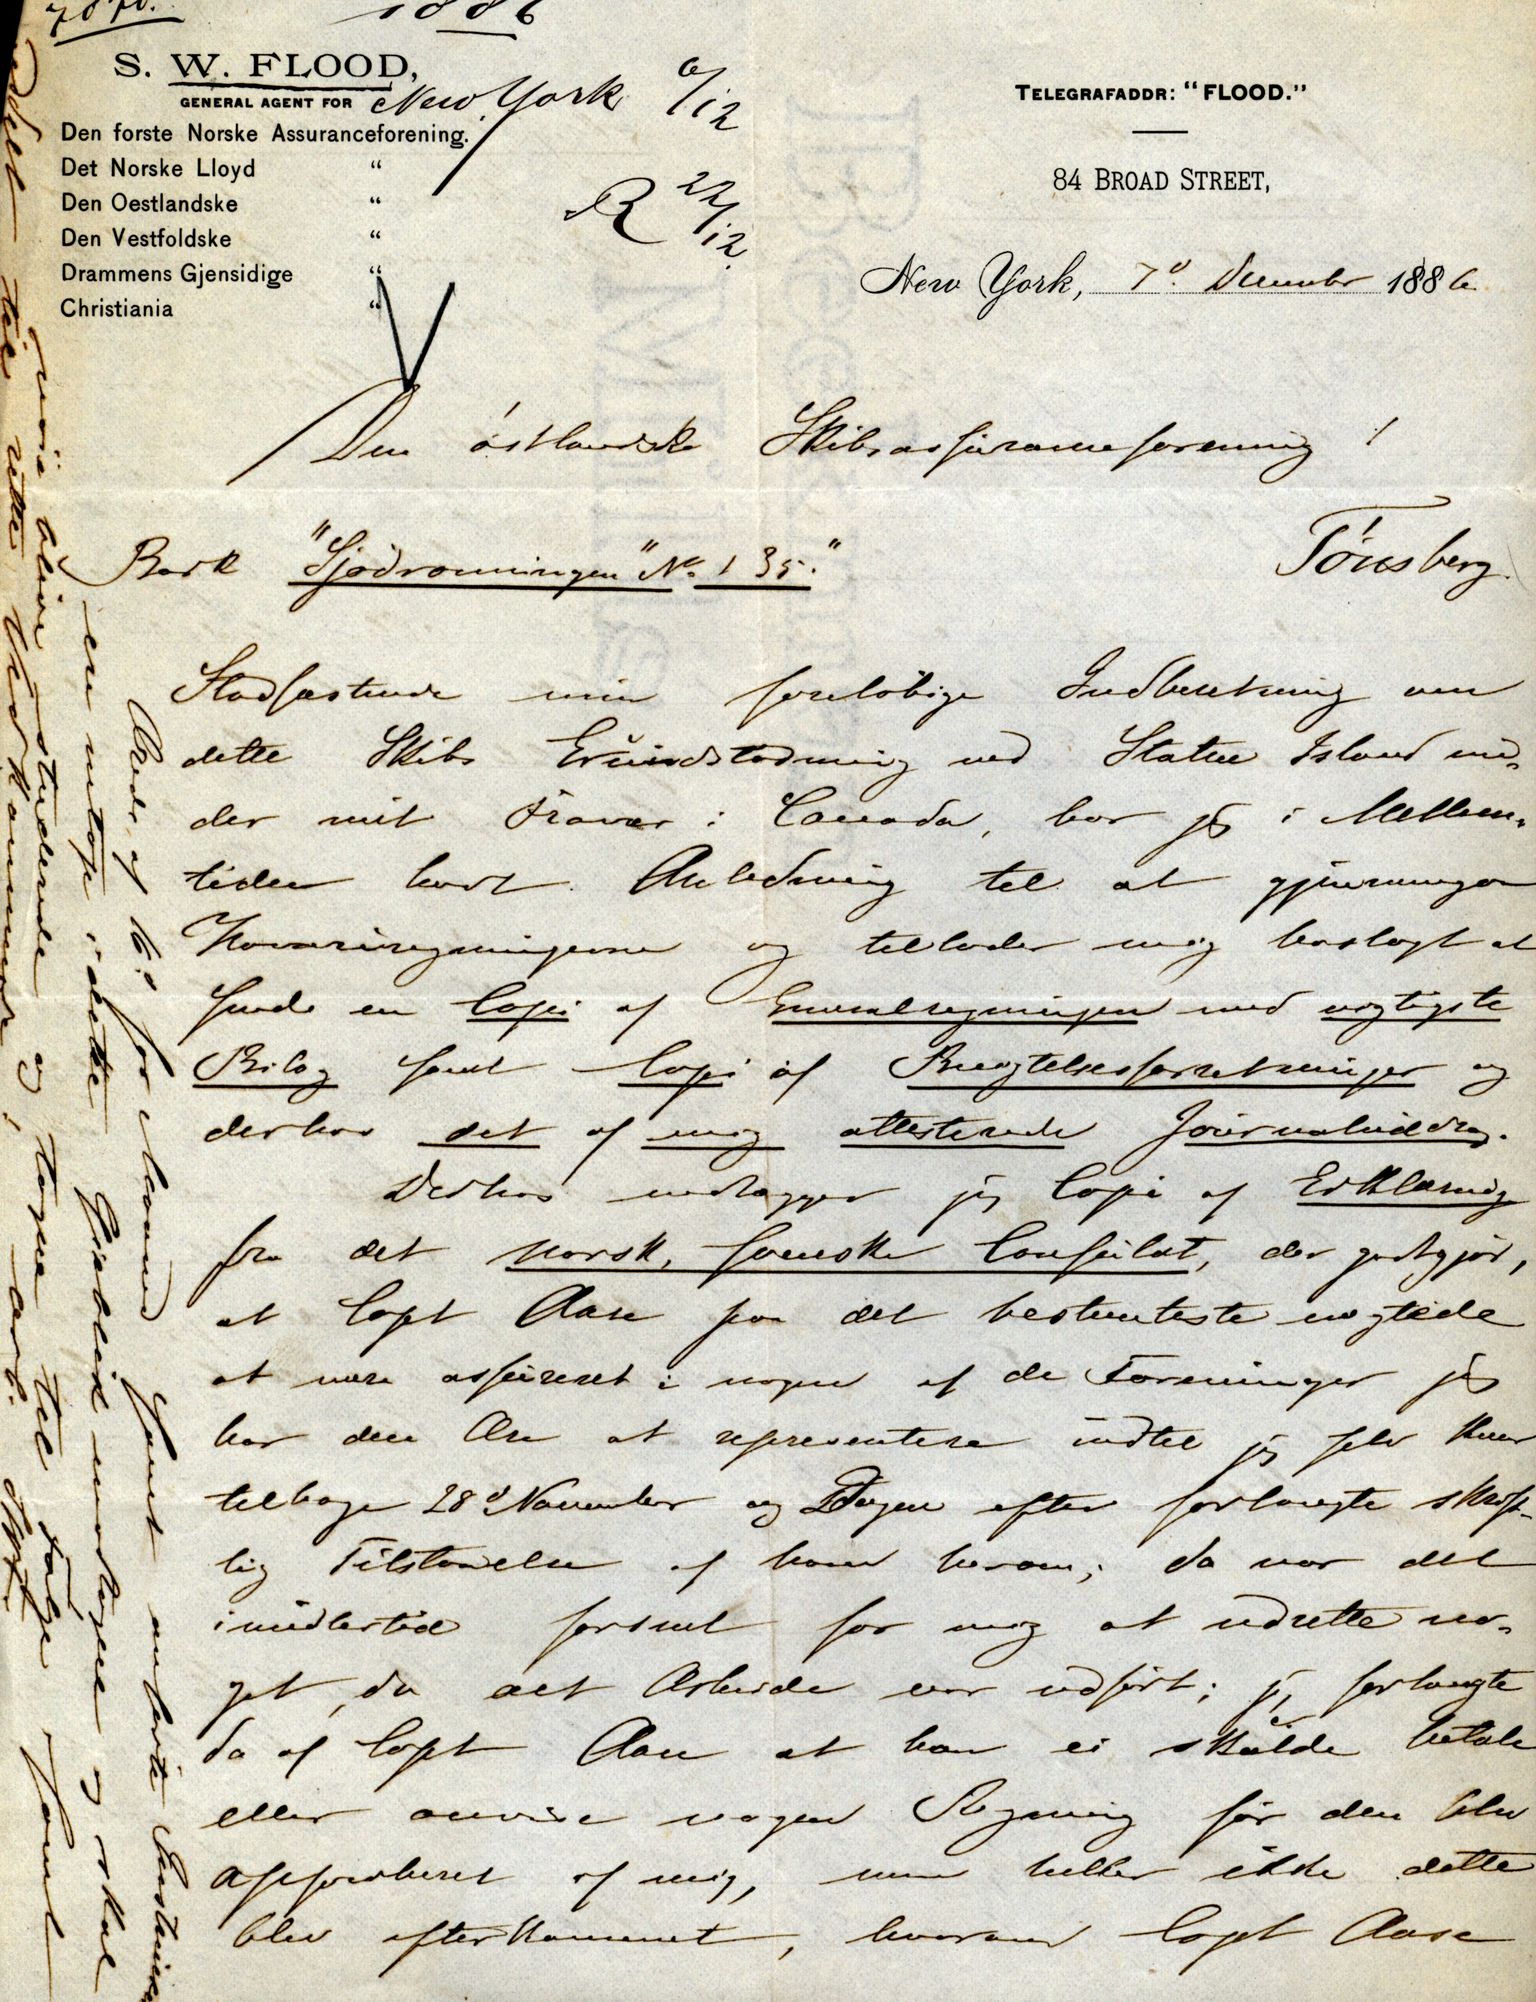 7870.
1886
S. W. FLOOD,
GENERAL AGENT FOR
Den forste Norske Assuranceforening.
Det Norske Lloyd "
Den Oestlandske "
Den Vestfoldske "
Drammens Gjensidige "
Christiania "
New York 6/12
R 22/12.
TELEGRAFADDR: "FLOOD."
84 BROAD STREET,
New York, 7d. December 1886
Den östlandske Skibsassuranceforening!
Tönsberg.
Bark "Sjødronningen" No. 135."
Stadfæstende min foreløbige Indberetning om
dette Skibs Grundstødning ved Staten Island un-
der mit Fravær i Canada, har jeg i Mellem-
tiden havt Anledning til at gjennemgaa
Havariregningerne og tillader mig herlagt at
sende en Copi af Generalregningen med vigtigste
Bilag samt Copi af Besigtelsesforretninger og
derhos det af mig attesterede Journaluddrag.
Derhos vedlægger jeg Copi af Erklæring
fra det norsk, svenske Consulat, der godtgjør,
at Capt Aase paa det bestemteste nægtede
at være assureret i nogen af de Foreninger jeg
har den Ære at representere indtil jeg selv kom
tilbage 28d November og Dagen efter forlangte skrift-
lig Tilstaaelse af ham herom; da var det
imidlertid forsent for mig at udrette no-
get, da alt Arbeide var udført; jeg forlangte
da af Capt Aase at han ei skulde betale
eller anvise nogen Regning før den blev
approberet af mig, men heller ikke dette
blev efterkommet, hvorom Capt Aase
Deres af 16d for haand samt anførte
en modtage i dette Øieblik modtagen og skal
mine blive studerede og tagne til følge samt